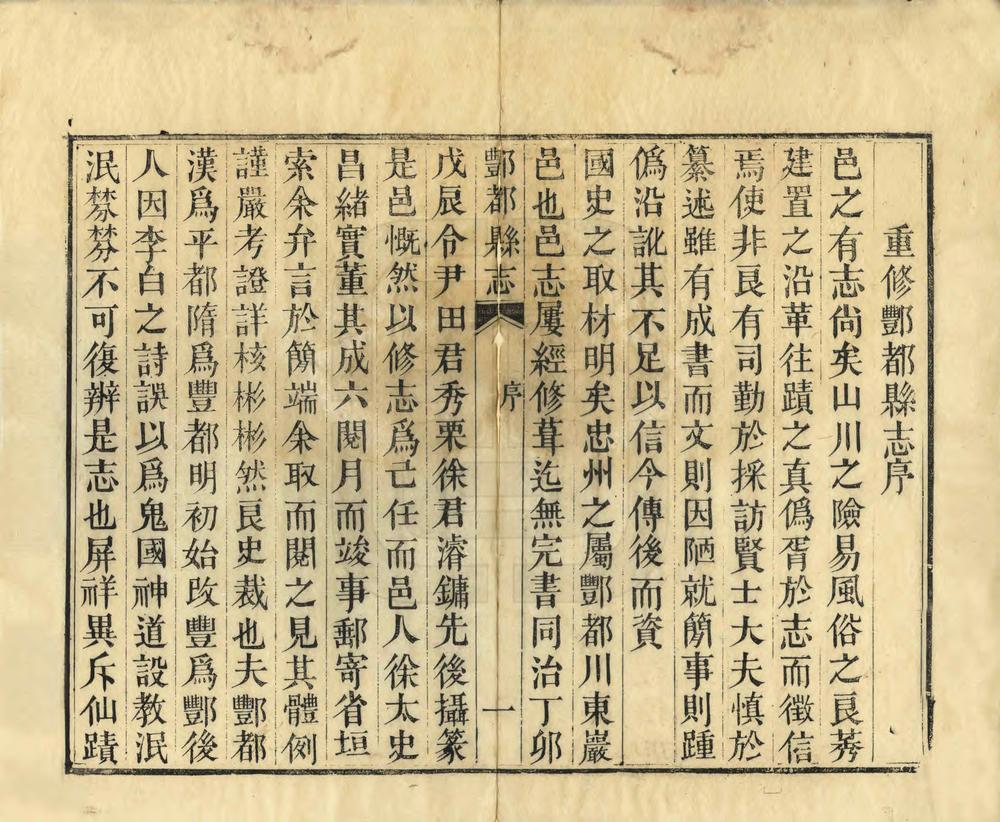 重修酆都縣志序
邑之有志尚矣山川之險易風俗之良莠
建置之沿革往蹟之真僞胥於志而徵信
焉使非良有司勤於採訪賢士大夫慎於
纂述雖有成書而文則因陋就簡事則踵
僞沿訛其不足以信今傳後而資
國史之取材明矣忠州之屬酆都川東巖
邑也邑志屢經修葺迄無完書同治丁卯
酆都縣志
序
一
戊辰令尹田君秀栗徐君濬鏞先後攝篆
是邑慨然以修志爲己任而邑人徐太史
昌緒實董其成六閱月而竣事郵寄省垣
索余弁言於簡端余取而閱之見其體例
謹嚴考證詳核彬彬然良史裁也夫酆都
漢爲平都隋爲豐都明初始改豐爲酆後
人因李白之詩誤以爲鬼國神道設教泯
泯棼棼不可復辨是志也屏祥異斥仙蹟